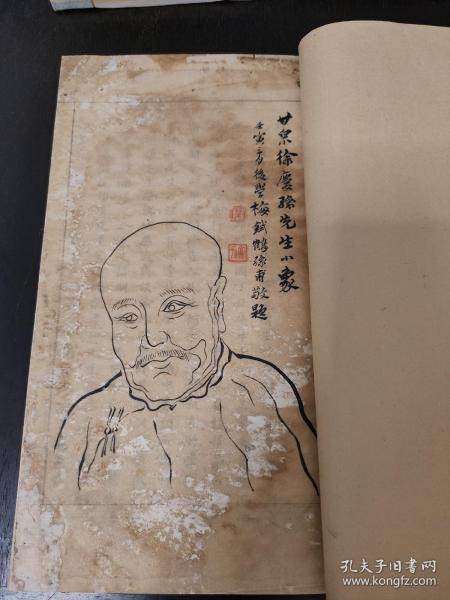 廿泉徐慶孫先生小象
壬寅三月後學梅鉽鶴孫甫敬題
孔夫子旧书网
www.kongfz.com